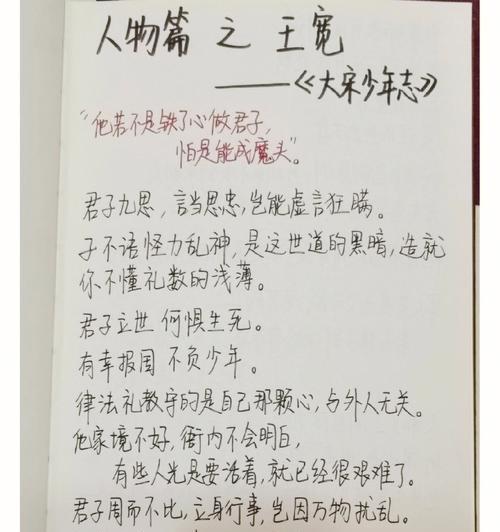 人物篇 之 王宽
——《大宋少年志》
“他若不是铁了心做君子,
怕是能成魔头”。
君子九思，言当思忠,岂能虚言狂瞒。
子不语怪力乱神,是这世道的黑暗,造就
你不懂礼数的浅薄。
君子立世 何惧生死。
有幸报国 不负少年。
律法礼教守的是自己那颗心,与外人无关。
他家境不好,衙内不会明白,
有些人光是要活着,就已经很艰难了。
君子周而不比,立身行事,岂因万物扰乱。